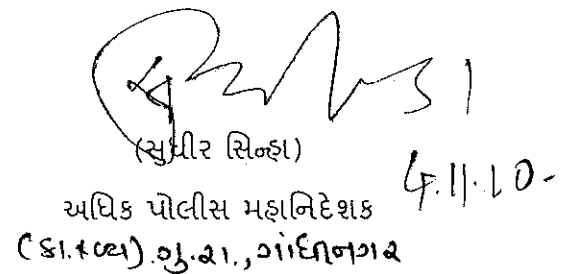 (સુધીર સિન્હા)
4.11.10-
અધિક પોલીસ મહાનિદેશક
(કા.અને વ્ય). ગુ.રા., ગાંધીનગર